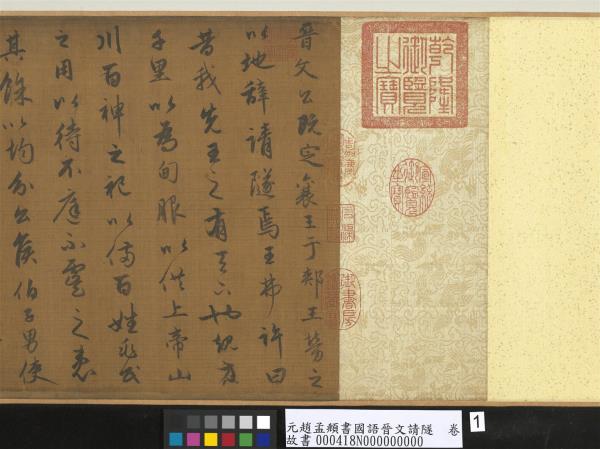 晉文公既定襄王于郟王勞之
以地辭請隧焉王弗許曰
昔我先王之有天下也規方
千里以為甸服以供上帝山
川百神之祀以備百姓兆民
之用以待不庭不虞之患
其餘以均分公侯伯子男使
乾隆御覽之寶
宣統御覽之寶
御書房
元趙孟頫書國語晉文請隧 卷
故書 000418N000000000
1